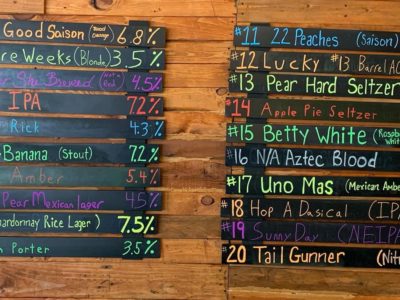 Good Saison (Blood Orange) 6.8%
Weeks (Blonde) 3.5%
She Brewed (Not A Red) 4.5%
IPA 7.2%
Rick 4.3%
Banana (Stout) 7.2%
Amber 5.4%
Pear Mexican lager 4.5%
Chardonnay Rice Lager) 7.5%
Porter 3.5%
#11 22 Peaches (Saison)
#12 Lucky #13 Barrel
#13 Pear Hard Seltzer
#14 Apple Pie Seltzer
#15 Betty White
#16 N/A Aztec Blood
#17 Uno Mas (Mexican
#18 Hop A Dasical (IPA
#19 Sunny Day (NEIPA
#20 Tail Gunner